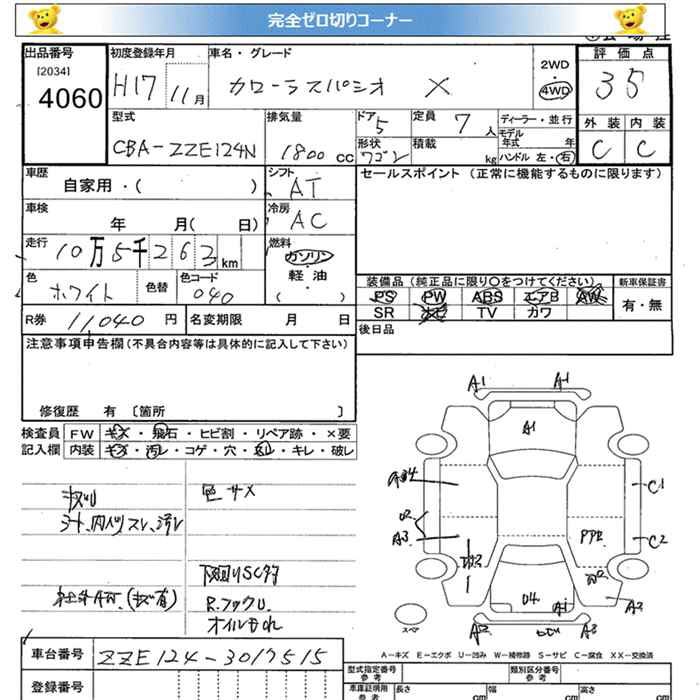 完全ゼロ切りコーナー
出品番号
[2034]
4060
初度登録年月
H17 11月
車名・グレード
カローラスパシオ X
2WD
4WD
評価点
35
外装 内装
C C
型式
CBA-ZZE124N
排気量
1800 CC
ドア
5
定員
7人
形状
ワゴン
積載
kg
ディーラー・並行
モデル年式 年
ハンドル 左・右
車歴
自家用・( )
シフト
AT
車検
年 月( 日)
冷房
AC
走行
10万5千263km
燃料
ガソリン
軽・油
( )
色
ホワイト
色替
色コード
040
R券 11,040円
名変期限 月 日
セールスポイント(正常に機能するものに限ります)
装備品(純正品に限り〇をつけてください)
PS PW ABS エアB AW
SR ナビ TV カワ
新車保証書
有・無
後日品
注意事項申告欄(不具合内容等は具体的に記入して下さい)
修復歴 有〔箇所 〕
検査員
記入欄
FW キズ・飛石・ヒビ割・リペア跡・×要
内装 キズ・汚レ・コゲ・穴・スレ・キレ・破レ
色サメ
シート、内ハリスレ、汚レ
下回りSC有
社外AW(キズ有)
R.フックU
オイルもれ
A1 A1
A1
C1
A3
C2
U4
A1
A2
A2 A3
スペア
A-キズ E-エクボ U-凹み W-補修跡 S-サビ C-腐食 XX-交換済
車台番号
ZZE124-3017515
登録番号
型式指定番号
参考
類別区分番号
参考
車庫証明用
参考
長さ cm
幅 cm
高さ cm